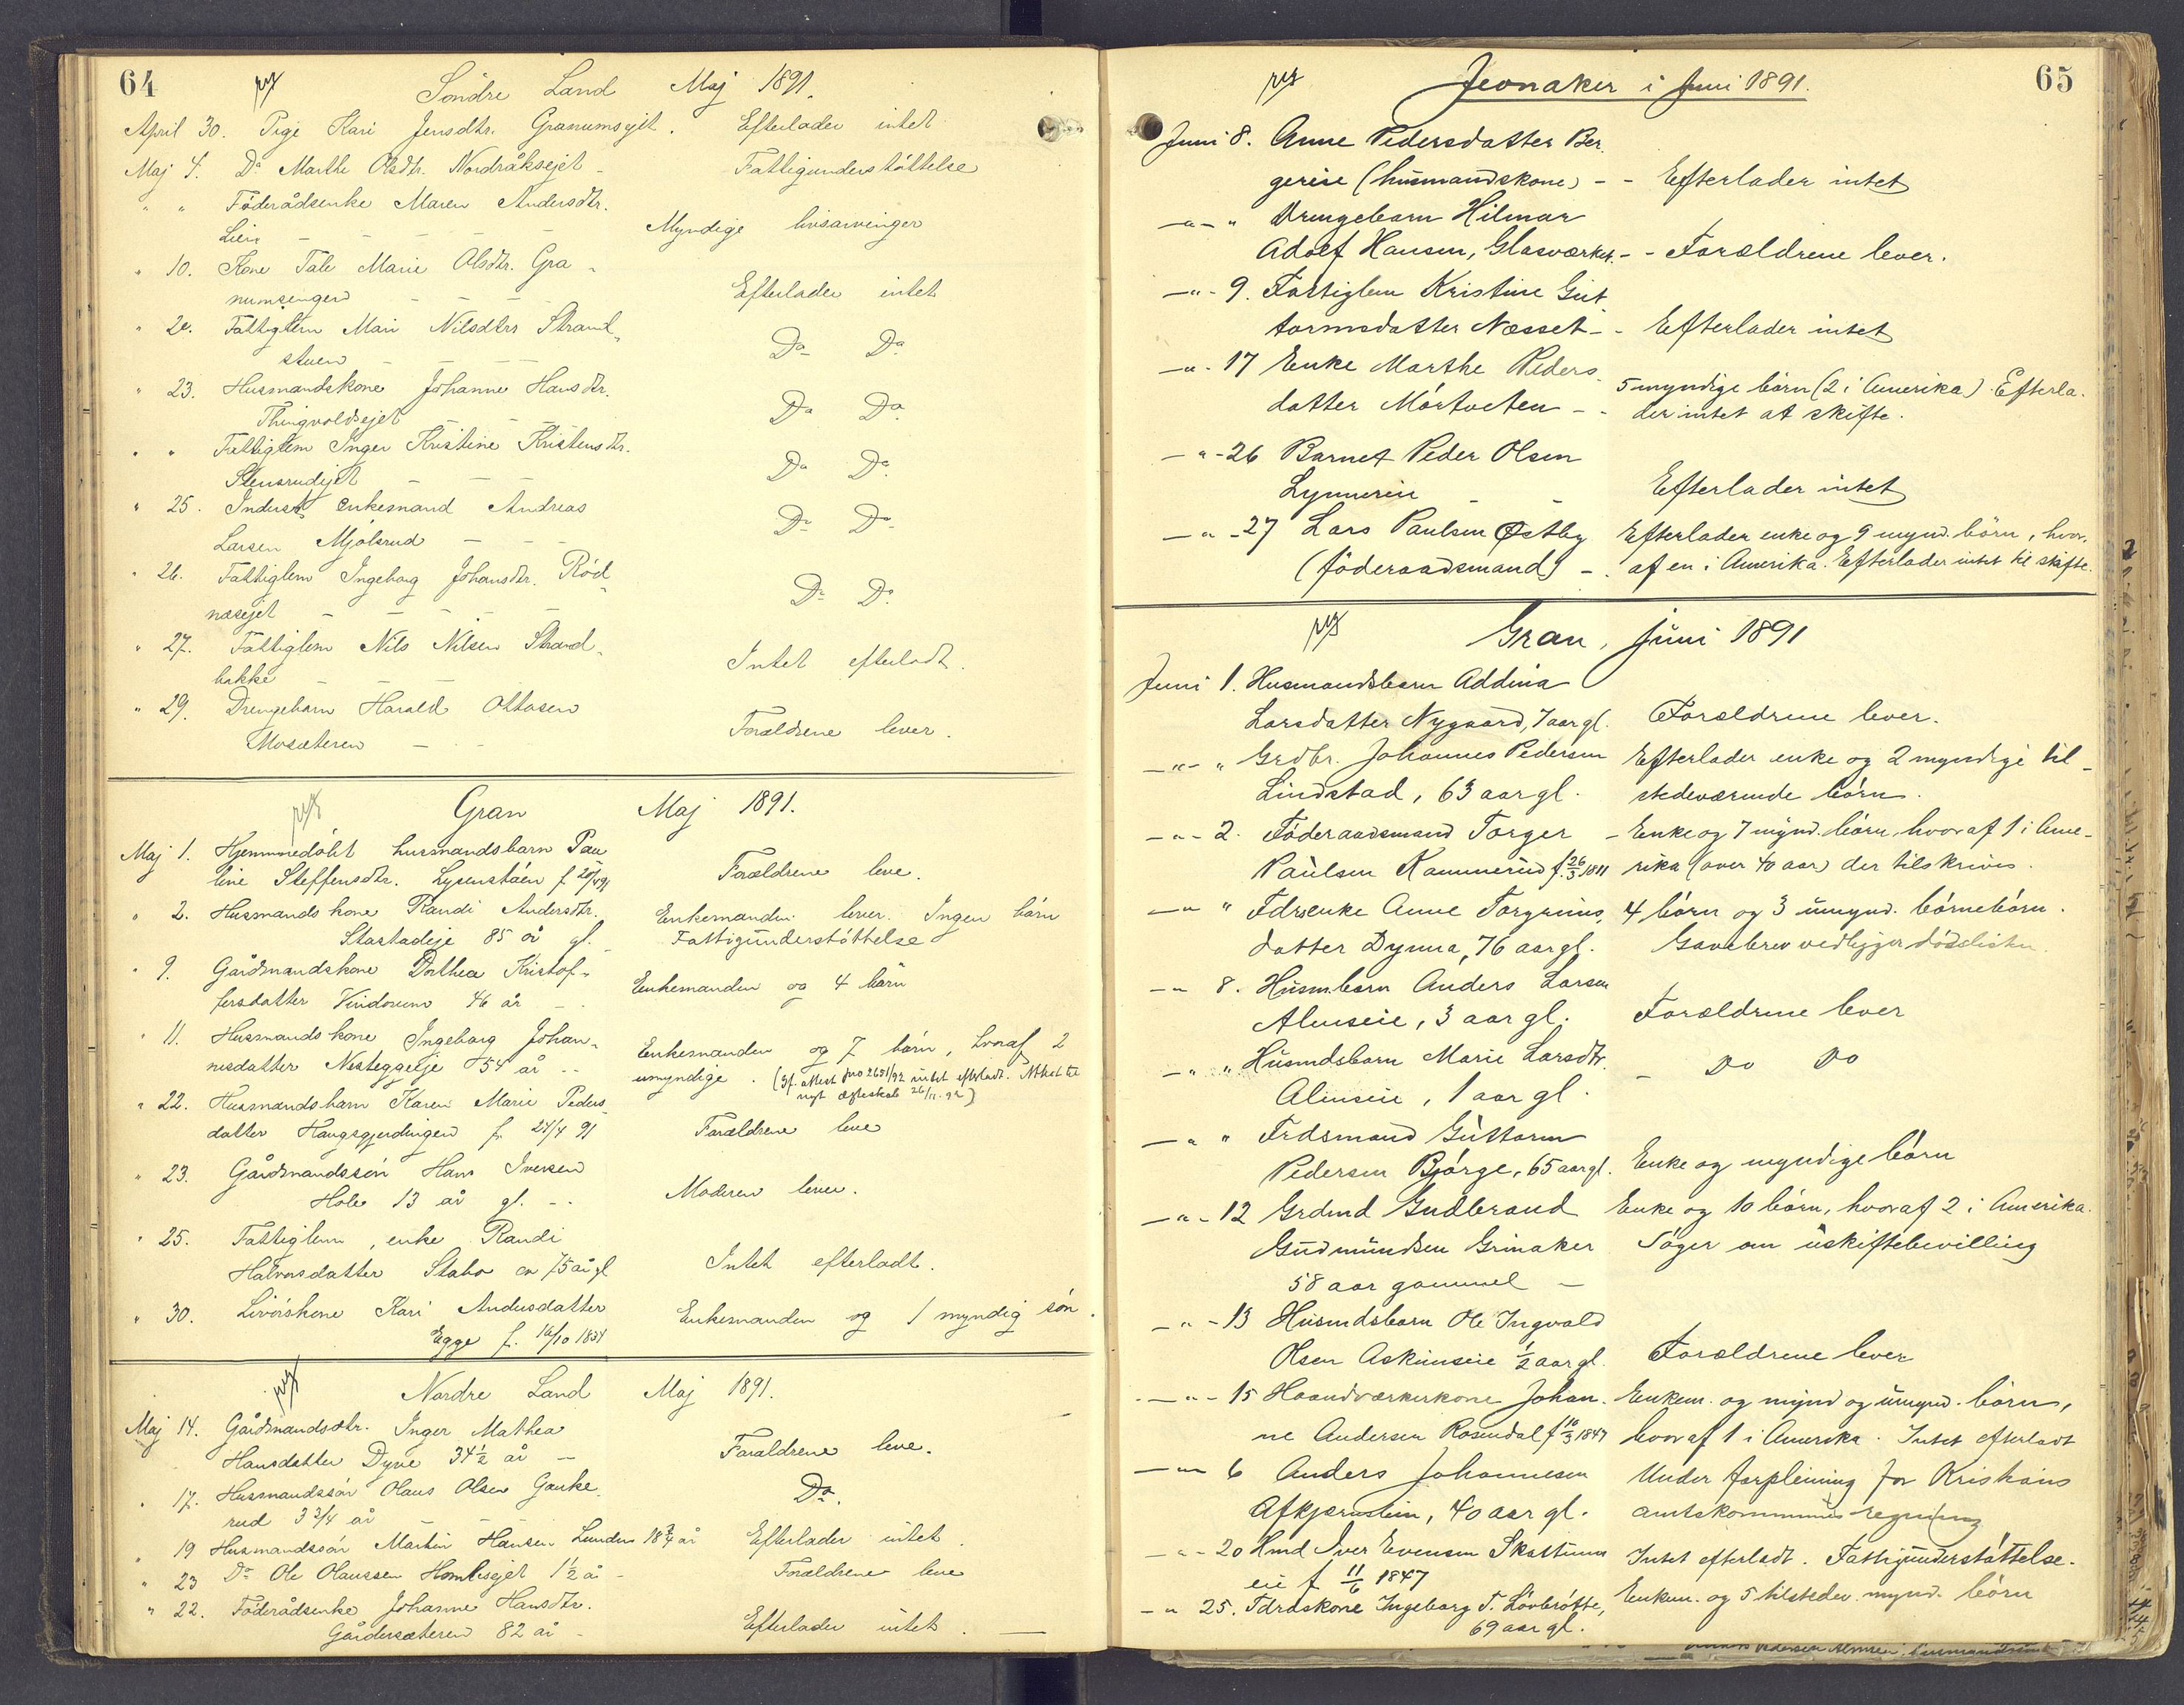 64
Söndre Land Maj 1891.
April 30. Pige Kari Jensdtr. Granumsejet. Efterlader intet
Maj 4. Do Marthe Olsdtr. Nordråksejet - Fattigunderstöttelse
" " Föderådsenke Maren Andersdtr.
Lien - - - - Myndige livsarvinger
" 10. Kone Tale Marie Olsdtr. Gra-
numsengen - - - Efterlader intet
" 20. Fattiglem Mari Nilsdtr Strand-
stuen - - - - Do Do
" 23. Husmandskone Johanne Hansdtr.
Thingvoldsejet - - Do Do
" " Fattiglem Inger Kristine Kristensdtr.
Stensrudejet - - - Do Do
" 25. Inderst, enkemand Andreas
Larsen Mjölsrud - - - Do Do
" 26. Fattiglem Ingeborg Johansdtr. Röd-
næsejet - - - - Do Do
" 27. Fattiglem Nils Nilsen Strand-
bakke - - - Intet efterladt.
" 29. Drengebarn Harald Ottosen
Mosæteren - - - Forældrene lever.
Gran Maj 1891.
Maj 1. Hjemmedöbt husmandsbarn Pau
line Steffensdtr. Lysenstöen Forældrene leve.
" 2. Husmandskone Randi Andersdtr. Enkemanden lever. Ingen börn
Stastadeje 85 år gl. Fattigunderstöttelse
" 9. Gårdmandskone Dorthea Kristof-
fersdatter Vindorum 46 år - - Enkemanden og 4 börn
" 11. Husmandskone Ingeborg Johan-
nesdatter Nesteggeje 54 år - - Enkemanden og 7 börn, hvoraf 2
umyndige. (Jf. attest jno 2651/92 intet efterladt. Attest til
nyt ægteskab 26/11.92)
" 22. Husmandsbarn Karen Marie Peders-
datter Haugsgjerdingen f. 24/4 91 Forældrene leve
" 23. Gårdmandssön Hans Iversen
Hole 13 år gl. - - Moderen lever.
" 25. Fattiglem, enke Randi
Halvorsdatter Stabo ca 75 år gl Intet efterladt.
" 30. Livörskone Kari Andersdatter
Egge f. 16/10 1834 Enkemanden og 1 myndig sön.
Nordre Land Maj 1891.
Maj 14. Gårdmandsdtr. Inger Mathea
Hansdatter Dyve 34½ år - Forældrene leve.
" 17. Husmandssön Olaus Olsen Gauke-
rud 3¾ år - - Do.
" 19 Husmandssön Martin Hansen Lunden 18¾ år Efterlader intet.
" 23 Do Ole Olaussen Homlisejet 1½ år - Forældrene leve
" 22. Föderådsenke Johanne Hansdtr.
Gårdersæteren 82 år - Efterlader intet. -
65
Jevnaker i Juni 1891.
Juni 8. Anne Pedersdatter Ber-
gereie (husmandskone) - - Efterlader intet
- " - " Drengebarn Hilmar
Adolf Hansen, Glasværket. - - Forældrene lever.
- " - 9. Fattiglem Kristine Gut-
tormsdatter Næsset - - Efterlader intet
- " - 17 Enke Marthe Peders-
datter Mörtveten - - 5 myndige börn (2 i Amerika). Efterla-
der intet at skifte.
- " - 26 Barnet Peder Olsen
Lynnerie - - Efterlader intet
- " - 27 Lars Paulsen Østby Efterlader enke og 9 mynd. börn, hvor-
(föderaadsmand) - . af en i Amerika. Efterlader intet til skifte.
Gran, Juni 1891
Juni 1. Husmandsbarn Addina
Larsdatter Nygaard, 7 aar gl. Forældrene lever.
- " - " Grdbr. Johannes Pedersen Efterlader enke og 2 myndige til-
Lindstad, 63 aar gl. stedeværende börn.
- " - 2. Föderaadsmand Torger - Enke og 7 mynd. börn, hvoraf 1 i Ame-
Paulsen Kammerud f. 26/3 1811 rika (over 40 aar) der tilskrives.
- " " Fdrsenke Anne Torgrims- 4 börn og 3 umynd. börnebörn.
datter Dynna, 76 aar gl. Gavebrev vedligger dödslisten.
- " 8. Husm.barn Anders Larsen
Almseie, 3 aar gl. Forældrene lever
- " " Husmdsbarn Marie Larsdtr.
Almseie, 1 aar gl. - Do Do
- " " Frdsmand Guttorm
Pedersen Bjørge, 65 aar gl. Enke og myndige börn
- " - 12 Grdmd Gudbrand Enke og 10 börn, hvoraf 2 i Amerika.
Gudmundsen Grinaker Söger om uskiftebevilling
58 aar gammel -
- " - 13 Husmdsbarn Ole Ingvald
Olsen Askimseie ½ aar gl. Forældrene lever
- " - 15 Haandværkerkone Johan- Enkem. og mynd og umynd. börn,
ne Andersen Rosendal f 10/3 1847 hvoraf 1 i Amerika. Intet efterladt
- " 6 Anders Johannesen Under forpleining for Kristians
Afkjærnstein, 40 aar gl. amtskommunes regning
- " - 20 Hmd Iver Evensen Skattum-
eie f 11/6 1847 Intet efterladt. Fattigunderstöttelse.
- " 25. Fdrdskone Ingeborg T. Lövbrötte, Enkem. og 5 tilstedev. mynd. börn
69 aar gl.